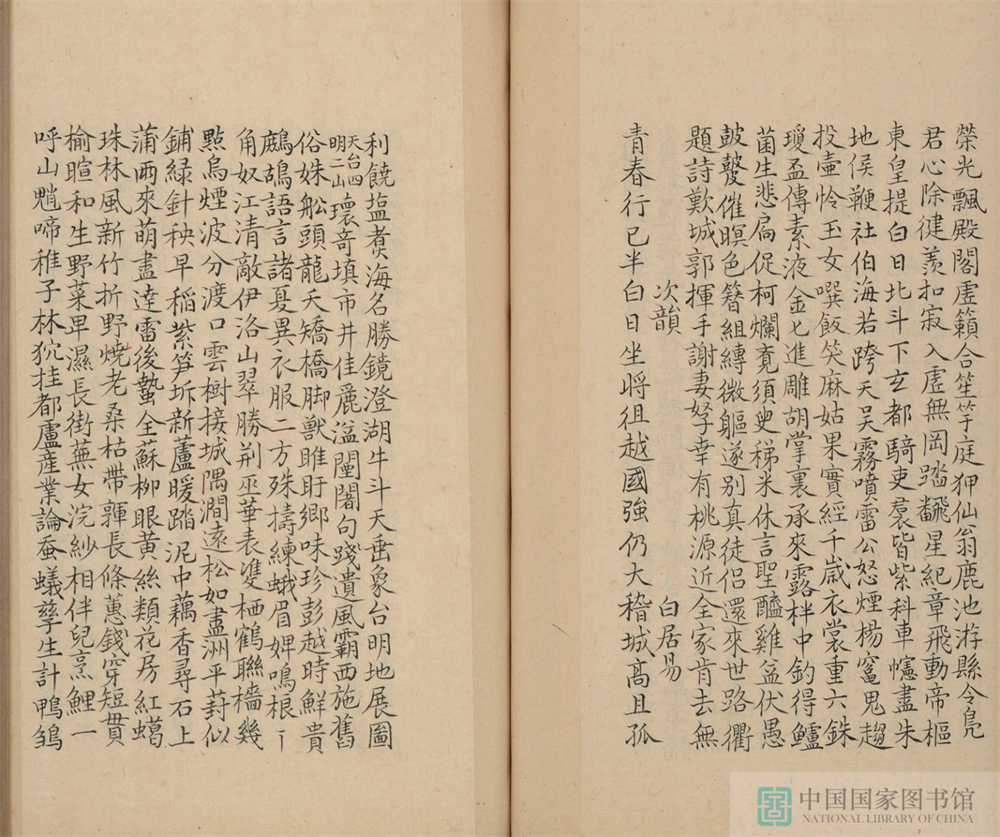 榮光飄殿閣虛籟合笙竽庭狎仙翁鹿池游縣令鳧
君心除健羨扣寂入虛無岡踏翻星紀章飛動帝樞
東皇提白日北斗下玄都騎吏羣皆紫科車幰盡朱
地侯鞭社伯海若跨天吳霧噴雷公怒煙楊竈鬼趨
投壷怜玉女噀飯笑麻姑果實經千歳衣裳重六銖
瓊盃傳素液金匕進雕胡掌裏承來露柈中釣得鱸
菌生悲扃促柯爛竟須臾稊米休言聖醯雞益伏愚
鼓鼙催暝色簪組縛微軀遂别真徒侶還來世路衢
題詩歎城郭揮手謝妻孥幸有桃源近全家肯去無
次韻 白居易
青春行已半白日坐将徂越國強仍大稽城髙且孤
利饒塩煑海名勝鏡澄湖牛斗天垂象台明地展圖
天台四明二山瓌奇填市井佳麗溢闉闍句踐遺風霸西施舊
俗姝舩頭龍夭矯橋脚獸睢盱鄉味珍彭越時鮮貴
鷓鴣語言諸夏異衣服一方殊擣練蛾眉婢鳴根丨
角奴江清敵伊洛山翠勝荆巫華表雙栖鶴聯檣幾
點烏煙波分渡口雲樹接城隅澗遠松如畫洲平葑似
鋪緑針秧早稲紫笋坼新蘆暖踏泥中藕香尋石上
蒲雨來萌盡達雷後蟄全蘇柳眼黃絲類花房紅蠟
珠林風新竹折野燒老桑枯帶嚲長條蕙錢穿短貫
榆暄和生野菜卑濕長街蕪女浣紗相伴兒烹鯉一
呼山魈啼稚子林狖挂都盧産業論蚕蟻孳生計鴨雏
中国国家图书馆
NATIONAL LIBRARY OF CHINA